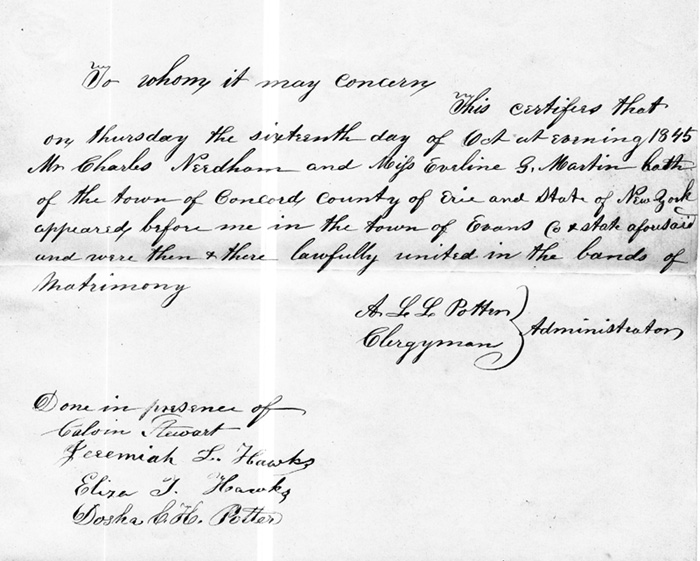 To whom it may concern
This certifers that
on thursday the sixteenth day of Oct at evening 1845
Mr Charles Needham and Miss Eveline G. Martin both
of the town of Concord County of Erie and State of New York
appeared before me in the town of Evans Co & state aforesaid
and were then & there lawfully united in the bands of
Matrimony
A L L Potter
Clergyman } Administrator
Done in presence of
Calvin Stewart
Jeremiah L. Hawks
Eliza T. Hawks
Dosha C. H. Potter